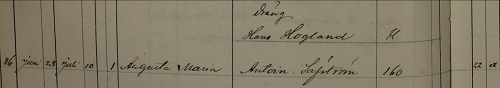 Dräng
Hans Hoglund
86 juni 28 juli 10 1 Augusta Maria Antoin. Säfström 160 22